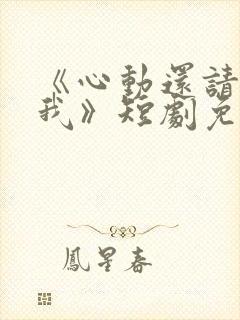 《心動還請
我》短劇免
鳳星春